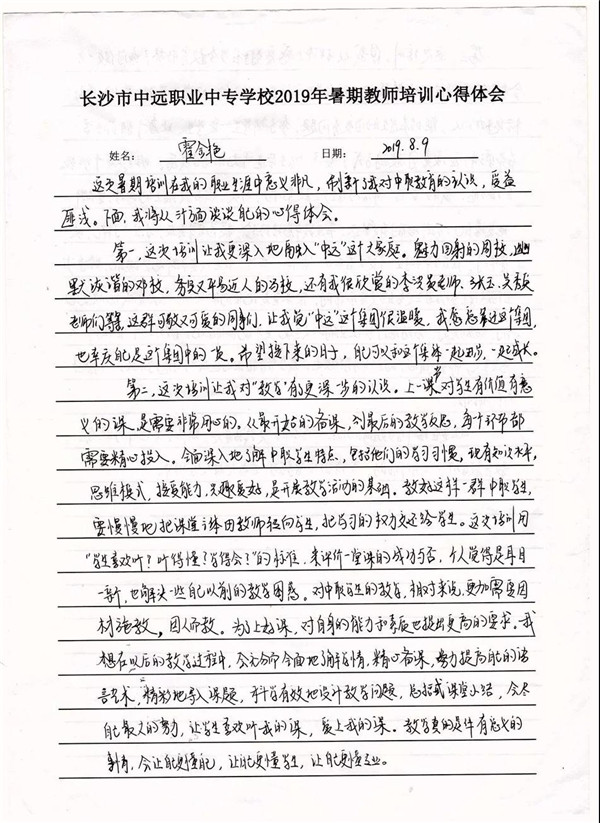 长沙市中远职业中专学校2019年暑期教师培训心得体会
姓名: 霍金艳 日期: 2019.8.9
这次暑期培训在我的职业生涯中意义非凡,刷新了我对中职教育的认识,受益
匪浅。下面,我将从几方面谈谈自己的心得体会。
第一,这次培训让我更深入地融入“中远”这个大家庭。魅力四射的周校,幽
默诙谐的邓校,务实又平易近人的方校,还有我很欣赏的李淑英老师、张玉、吴
老师们等,这群可敬又可爱的同事们,让我觉“中远”这个集团很温暖,我
也幸庆自己是这个集团中的一员。希望接下来的日子,自己可以和这个集体一起进步,一起成长。
第二,这次培训让我对“教学”有了更深一步的认识。上一课对学生有价值有意
义的课,是需要非常用心的。从最开始的备课,到最后的教学反思,每个环节都
需要精心投入。全面深入地了解中职学生特点,包括他们的学习习惯,现有知识水平,
思维模式,接受能力,兴趣爱好,是开展教学活动的基础。教好这样一群中职学生,
要慢慢地把课堂主体由教师转向学生,把学习的权力交还给学生。这次培训用
“学生喜欢听?听得懂?学得会?”的标准,来评价一堂课的成功与否,个人觉得是耳目
一新,也解决一些自己以前的教学困惑。对中职学生的教学,相对来说,更加需要因
材施教,因人而教。为了上好课,对自身的能力和素质也提出更高的要求。我
想在以后的教学过程中,会充分而全面地了解学情,精心备课,努力提高自己的语
言艺术,精彩地导入课题,科学有效地设计教学问题,总括式课堂小结,会尽
自己最大的努力,让学生喜欢听我的课,爱上我的课。教学真的是件有意义的
事情,会让自己更懂自己,让自己更懂学生,让自己更懂专业。